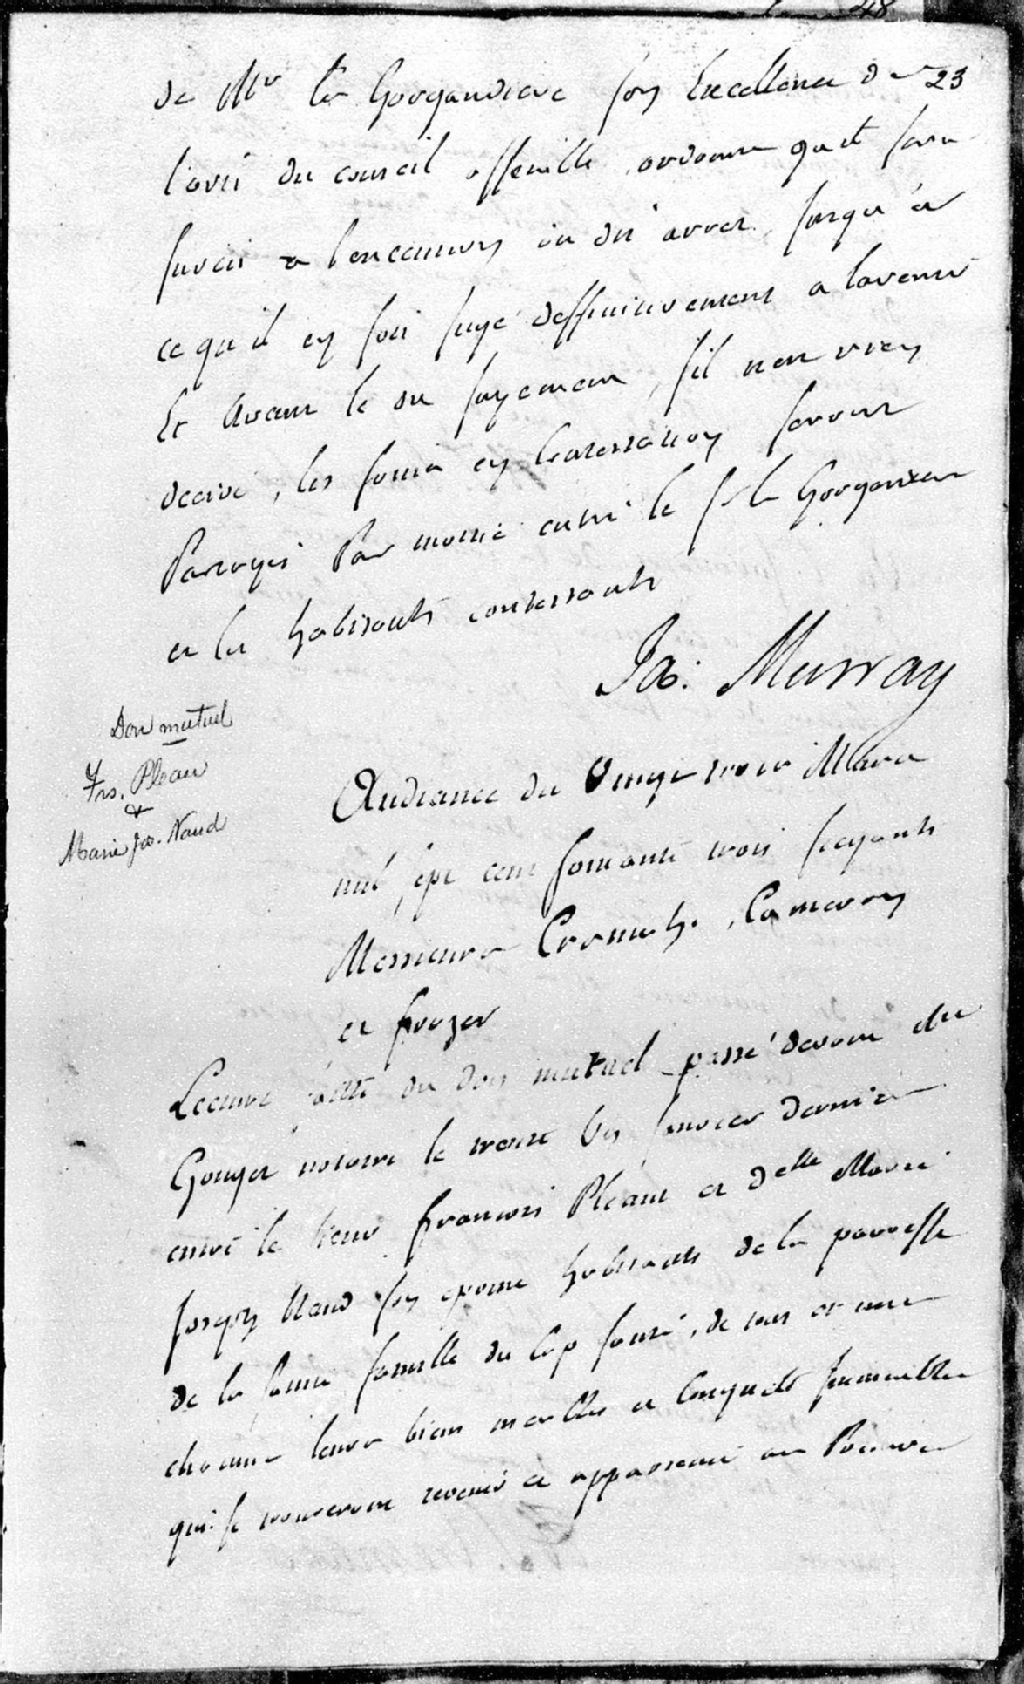 48
23
de Mr la Gorgendiere son Excellence de
l'avis du conseil assemblé, ordonne qu'il sera
sursis a l'encannes au dit arret, jusqu'à
ce qu'il en soit jugé deffinitivement a l'avenir
Et avant le du payement, s'il n'en vien
decidé, les foins en contestation seront
Partagés Par moitié entre le Sr la Gorgendiere
et les habitants contestants
Ja: Murray
Don mutuel
Frs. Pleau
&
Marie Jos. Naud
Audiance du Vingt trois Mars
mil sept cent soixante trois seeyants
Messieurs Cramahé, Cameron
et frazer
Lecture faitte du don mutuel passé devant
Gouget notaire le trente un janvier dernier
entre le sieur françois Pleaut et delle Marie
Joseph Naud son epouse habitants de la paroisse
de la sainte famille du Cap santé, de tous et un
chacuns leurs biens meubles et Conquets immeubles
qui se trouveront revenir et appartenir au Premier